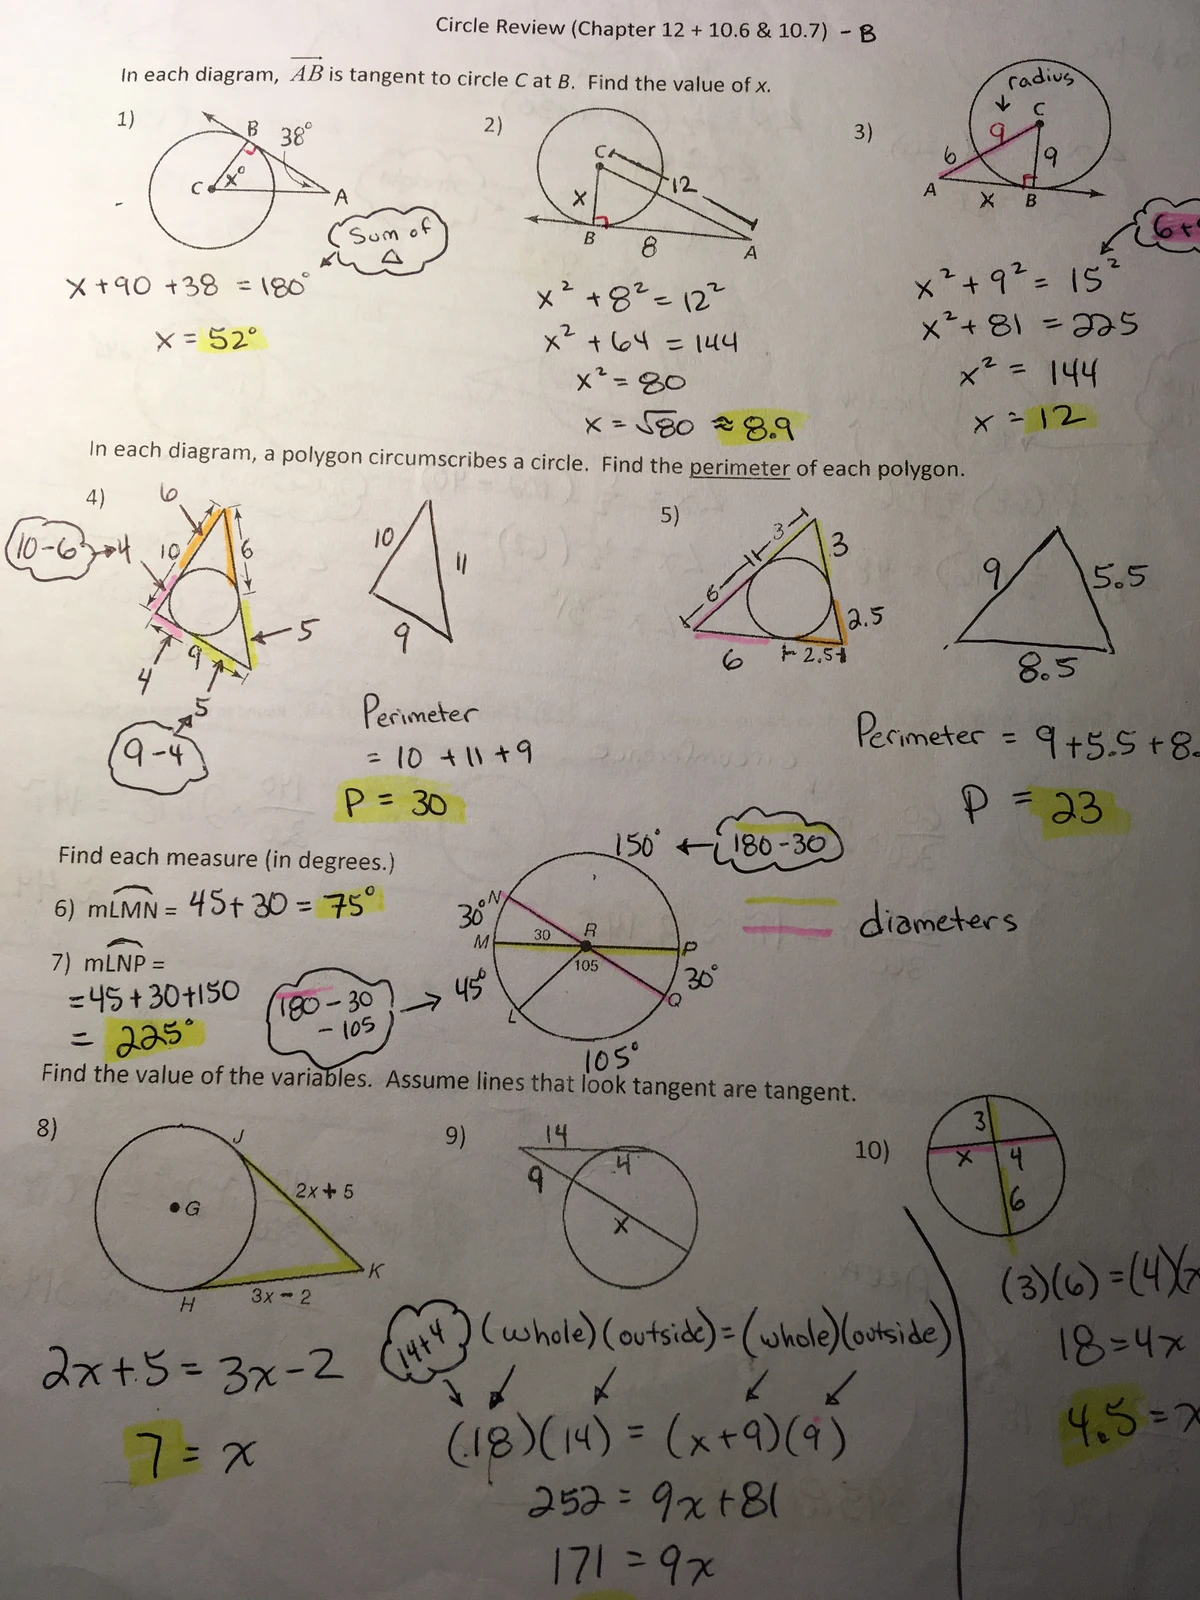 Circle Review (Chapter 12 + 10.6 & 10.7) - B
In each diagram, AB is tangent to circle C at B. Find the value of x.
1)
B 38°
C x°
A
Sum of
△
x + 90 + 38 = 180°
x = 52°
2)
C
12
x
B 8 A
x² + 8² = 12²
x² + 64 = 144
x² = 80
x = √80 ≈ 8.9
3)
radius
C
9
6 9
A x B
6+
x² + 9² = 15²
x² + 81 = 225
x² = 144
x = 12
In each diagram, a polygon circumscribes a circle. Find the perimeter of each polygon.
4)
6
10-6 4 10 6
5
9
4
5
9-4
10 11
9
Perimeter
= 10 + 11 + 9
P = 30
5)
3 3
6 2.5
6 2.5
9 5.5
8.5
Perimeter = 9+5.5+8.
P = 23
Find each measure (in degrees.)
6) mLMN = 45+30 = 75°
7) mLNP =
= 45+30+150
= 225°
180-30
-105
150° 180-30
30° N
M 30 R P
105
45° 30°
L Q
105°
diameters
Find the value of the variables. Assume lines that look tangent are tangent.
8)
J
G
2x + 5
K
H 3x - 2
2x+5 = 3x-2
7 = x
9)
14
4
9
x
14+4 (whole)(outside) = (whole)(outside)
(18)(14) = (x+9)(9)
252 = 9x+81
171 = 9x
10)
3
x 4
6
(3)(6) = (4)(x
18 = 4x
4.5 = x